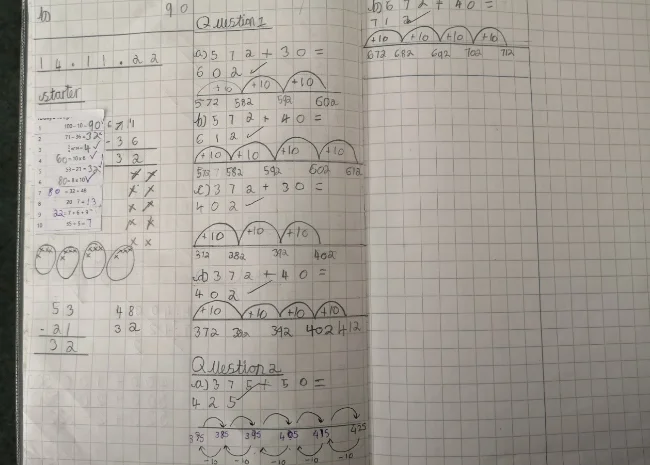 b)
90
14.11.22
starter
1 100-10=90
2 71-36=32
3
4 60÷10=6
5
6 80÷8=10
7 80
8 20-7=13
9 22
10
6 71
-36
32
53
-21
32
48
32
Question 1
a) 572+30=
602
+10 +10 +10
572 582 592 602
b) 572+40=
612
+10 +10 +10 +10
582 592 602 612
c) 372+30=
402
+10 +10 +10
382 392 402
d) 372+40=
402
+10 +10 +10 +10
372 382 392 402 412
Question 2
a) 375+50=
425
375 385 395 405 415 425
-10 -10 -10 -10 -10
b) 672+40=
712
+10 +10 +10 +10
672 682 692 702 712